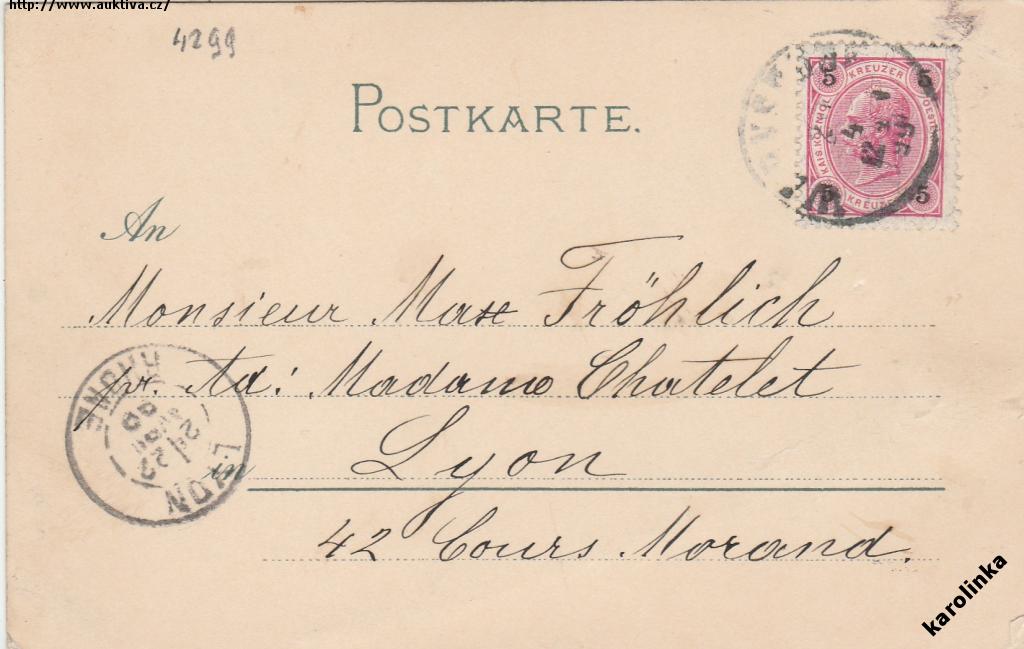 http://www.auktiva.cz/
4299
POSTKARTE.
KREUZER
5 5
KAIS. KÖNIGL.
5 5
KREUZER
An
Monsieur Max Fröhlich
pr. Ad: Madame Chatelet
in Lyon
42 Cours Morand.
LYON
RHONE
karolinka